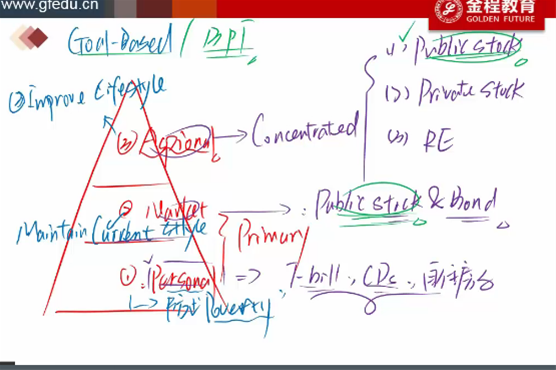 www.gfedu.cn
金程教育
GOLDEN FUTURE
Goal-Based / BPT
③ Improve Lifestyle
(3) Aspirational → Concentrated
(1) Public Stock
(2) Private Stock
(3) RE
② Market → : Public Stock & Bond
Maintain Current Style
Primary
①. Personal => T-bill, CDs,
Poverty